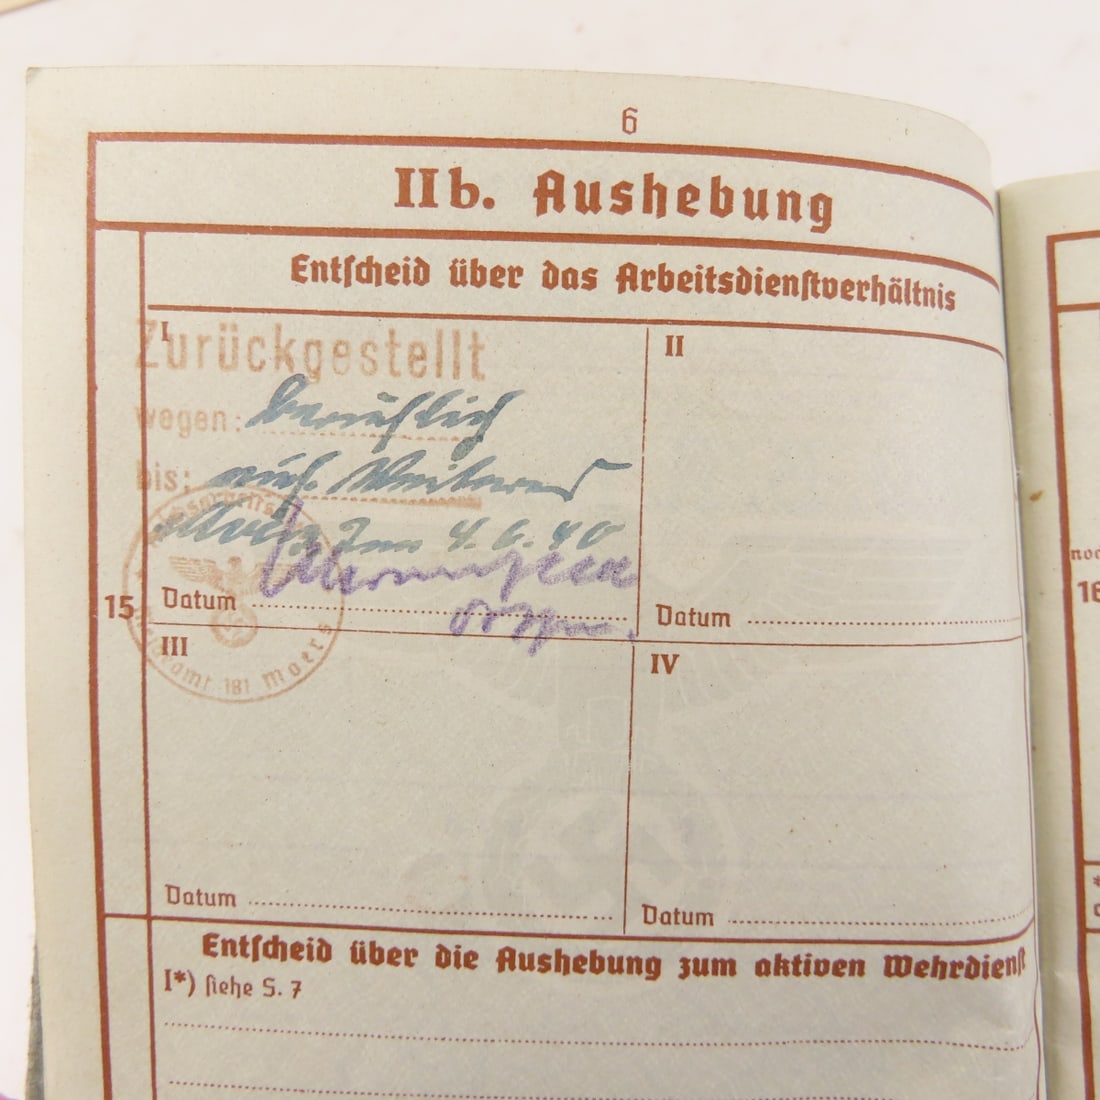 6
IIb. Aushebung
Entscheid über das Arbeitsdienstverhältnis
I
Zurückgestellt
wegen: beruflich
bis: auf. Weiteres
4. 6. 40
Datum
15
amt 181 Moers
II
Datum
III
Datum
IV
Datum
Entscheid über die Aushebung zum aktiven Wehrdienst
I*) siehe S. 7
noc
16